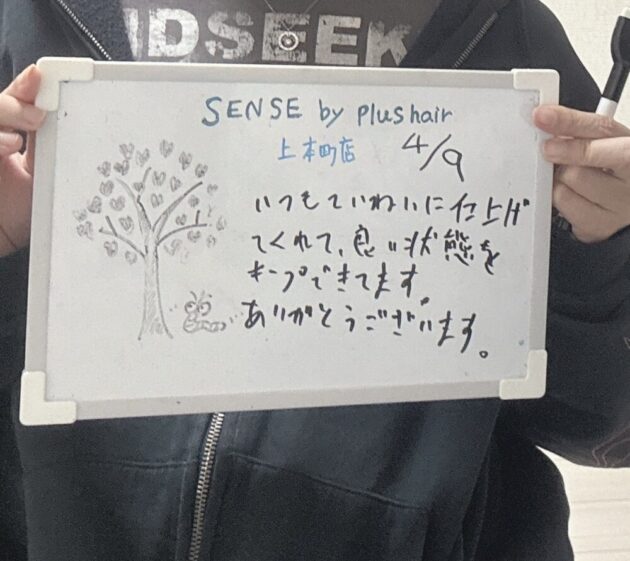 INDSEEK
SENSE by Plushair
上本町店 4/9
いつもていねいに仕上げ
てくれて、良い状態を
キープできてます。
ありがとうございます。